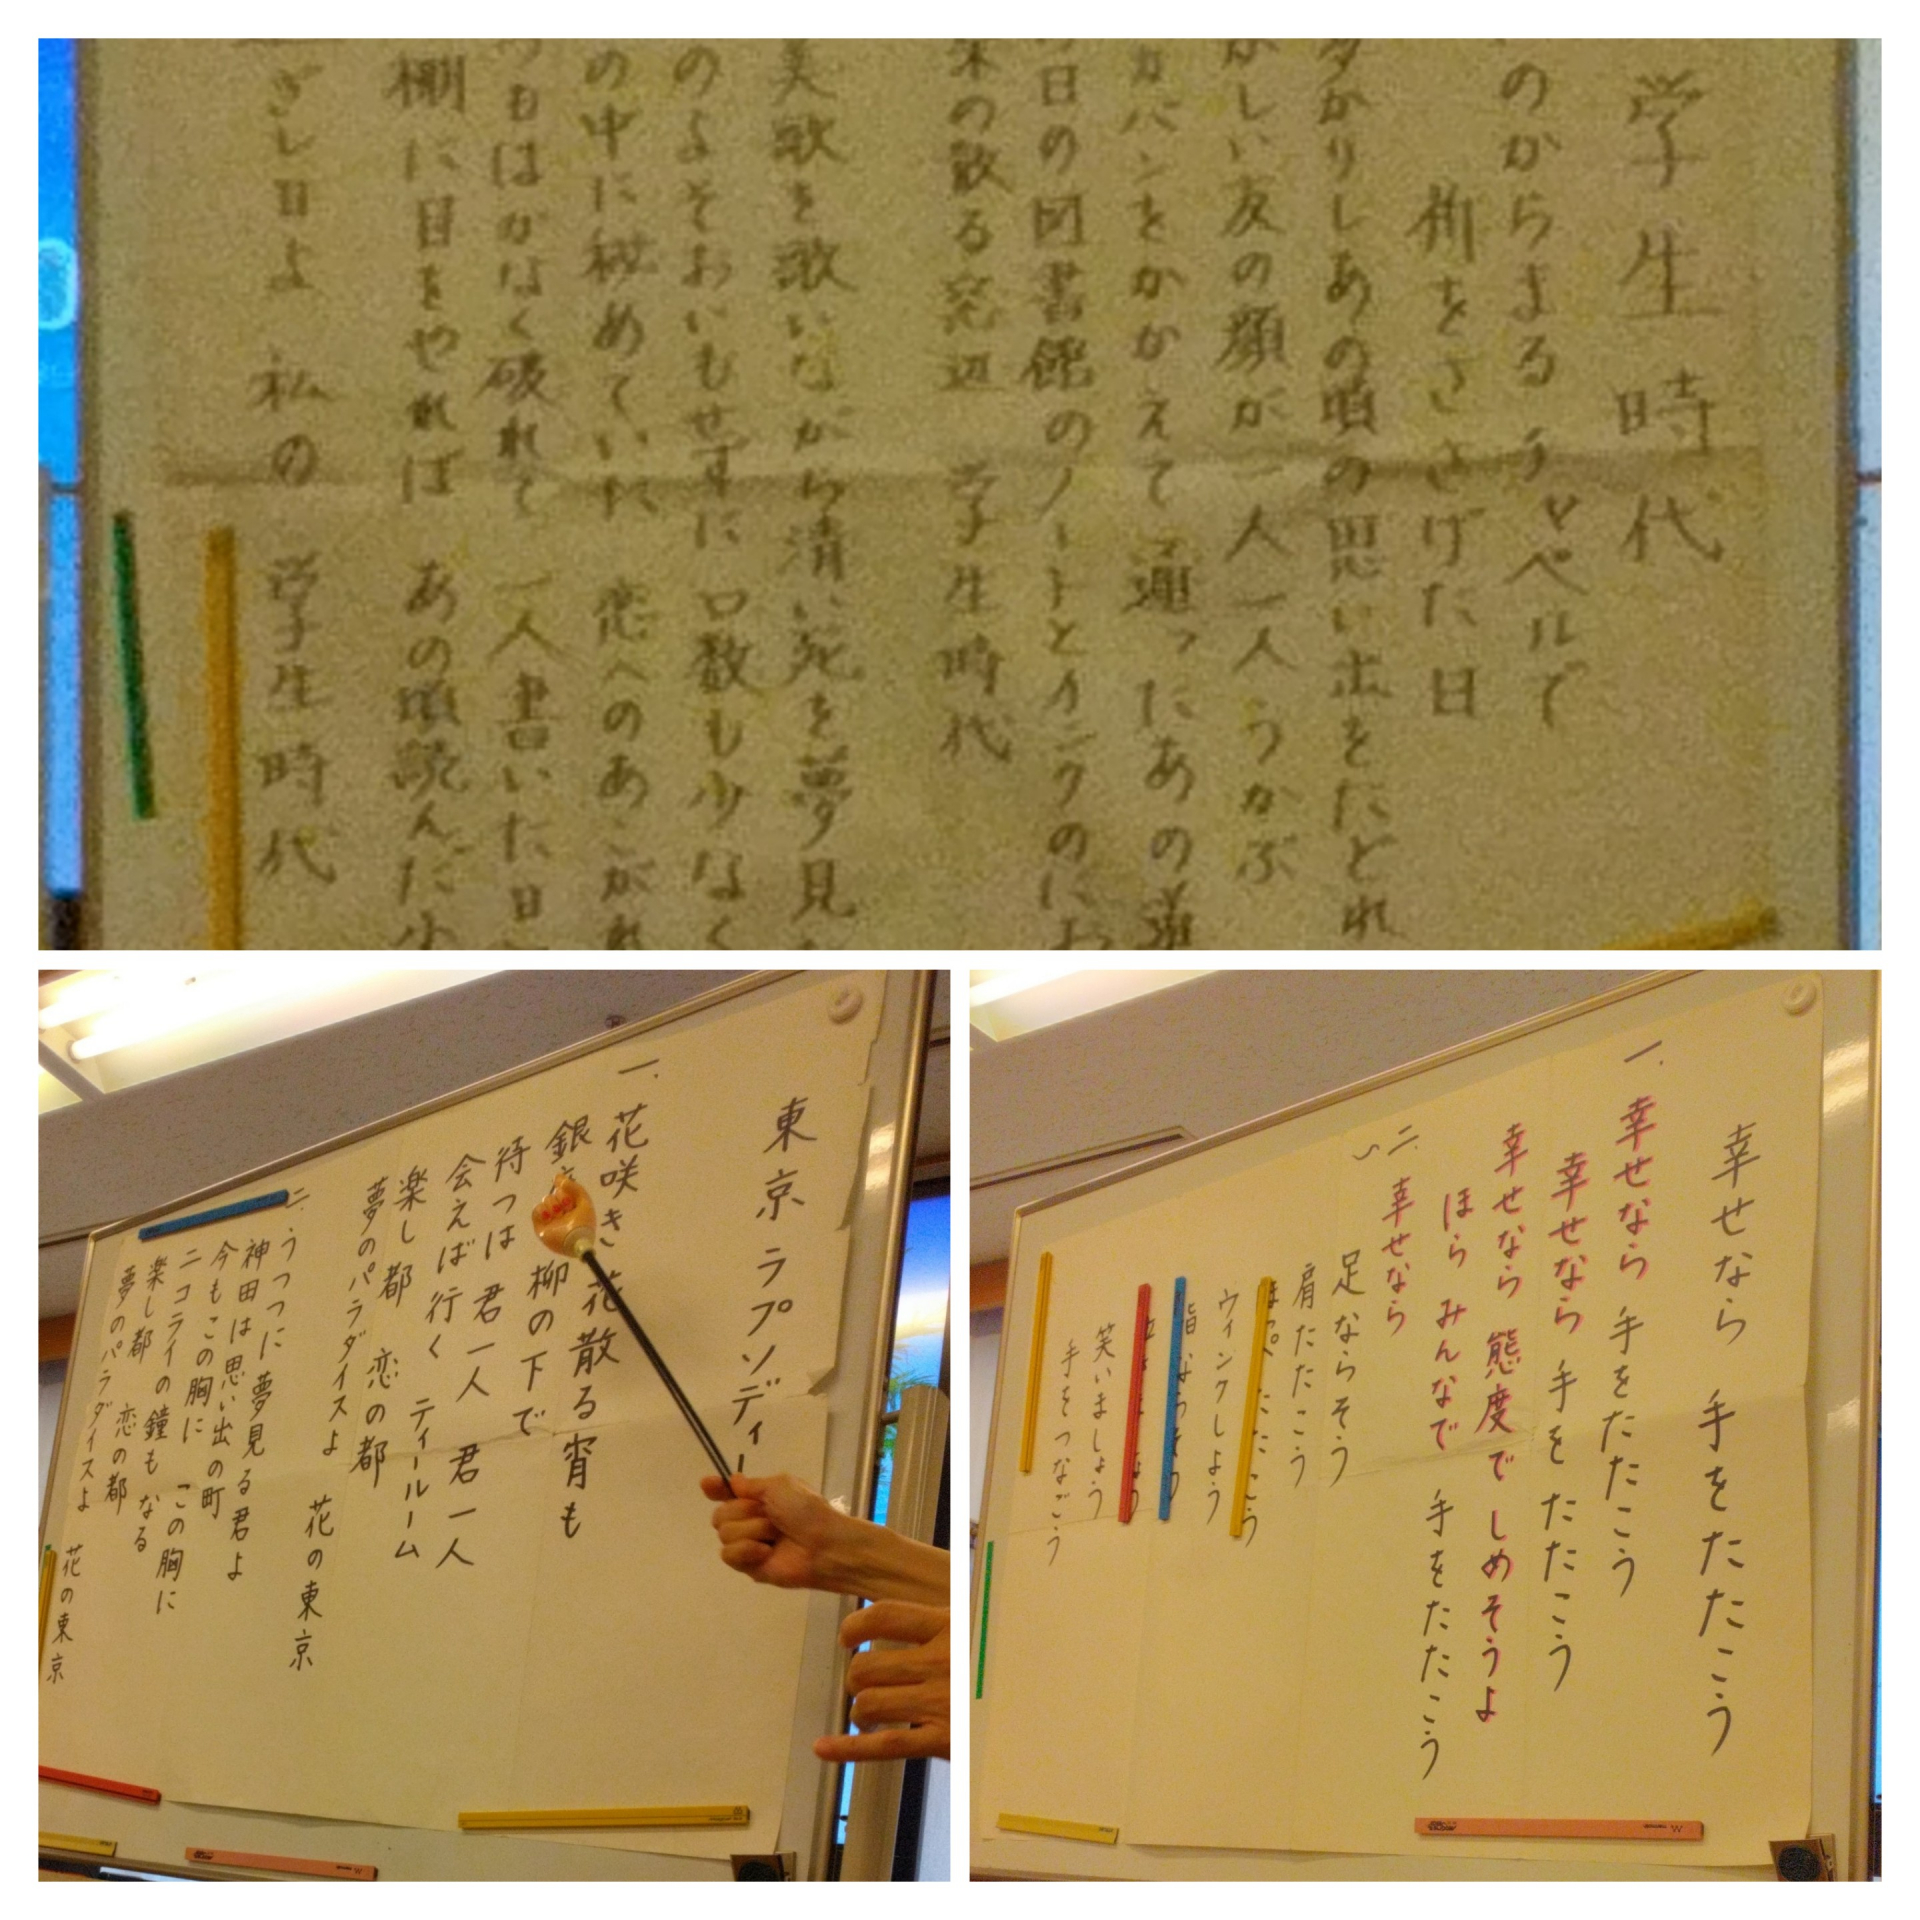 学生時代
のからまるチャペルで
祈をささげた日
多かりしあの頃の思い出をたどれ
かしい友の顔が一人一人うかぶ
カバンをかかえて通ったあの道
日の図書館のノートとインクのにお
の散る窓辺 学生時代
美歌を歌いながら清い死を夢見
のよそおいもせずに口数も少なく
の中に秘めていた 恋へのあこがれ
つもはかなく破れて 一人書いた日
棚に目をやれば あの頃読んだ小
ざし日よ 私の 学生時代
東京ラプソディー
一.花咲き花散る宵も
銀 柳の下で
待つは君一人 君一人
会えば行く ティールーム
楽し都 恋の都
夢のパラダイスよ 花の東京
二.うつつに夢見る君よ
神田は思い出の町
今もこの胸に この胸に
ニコライの鐘もなる
楽し都 恋の都
夢のパラダイスよ 花の東京
幸せなら手をたたこう
一.幸せなら手をたたこう
幸せなら手をたたこう
幸せなら態度でしめそうよ
ほらみんなで手をたたこう
二.幸せなら
〜
足ならそう
肩たたこう
ほっぺたたこう
ウィンクしよう
指ならそう
笑いましょう
手をつなごう